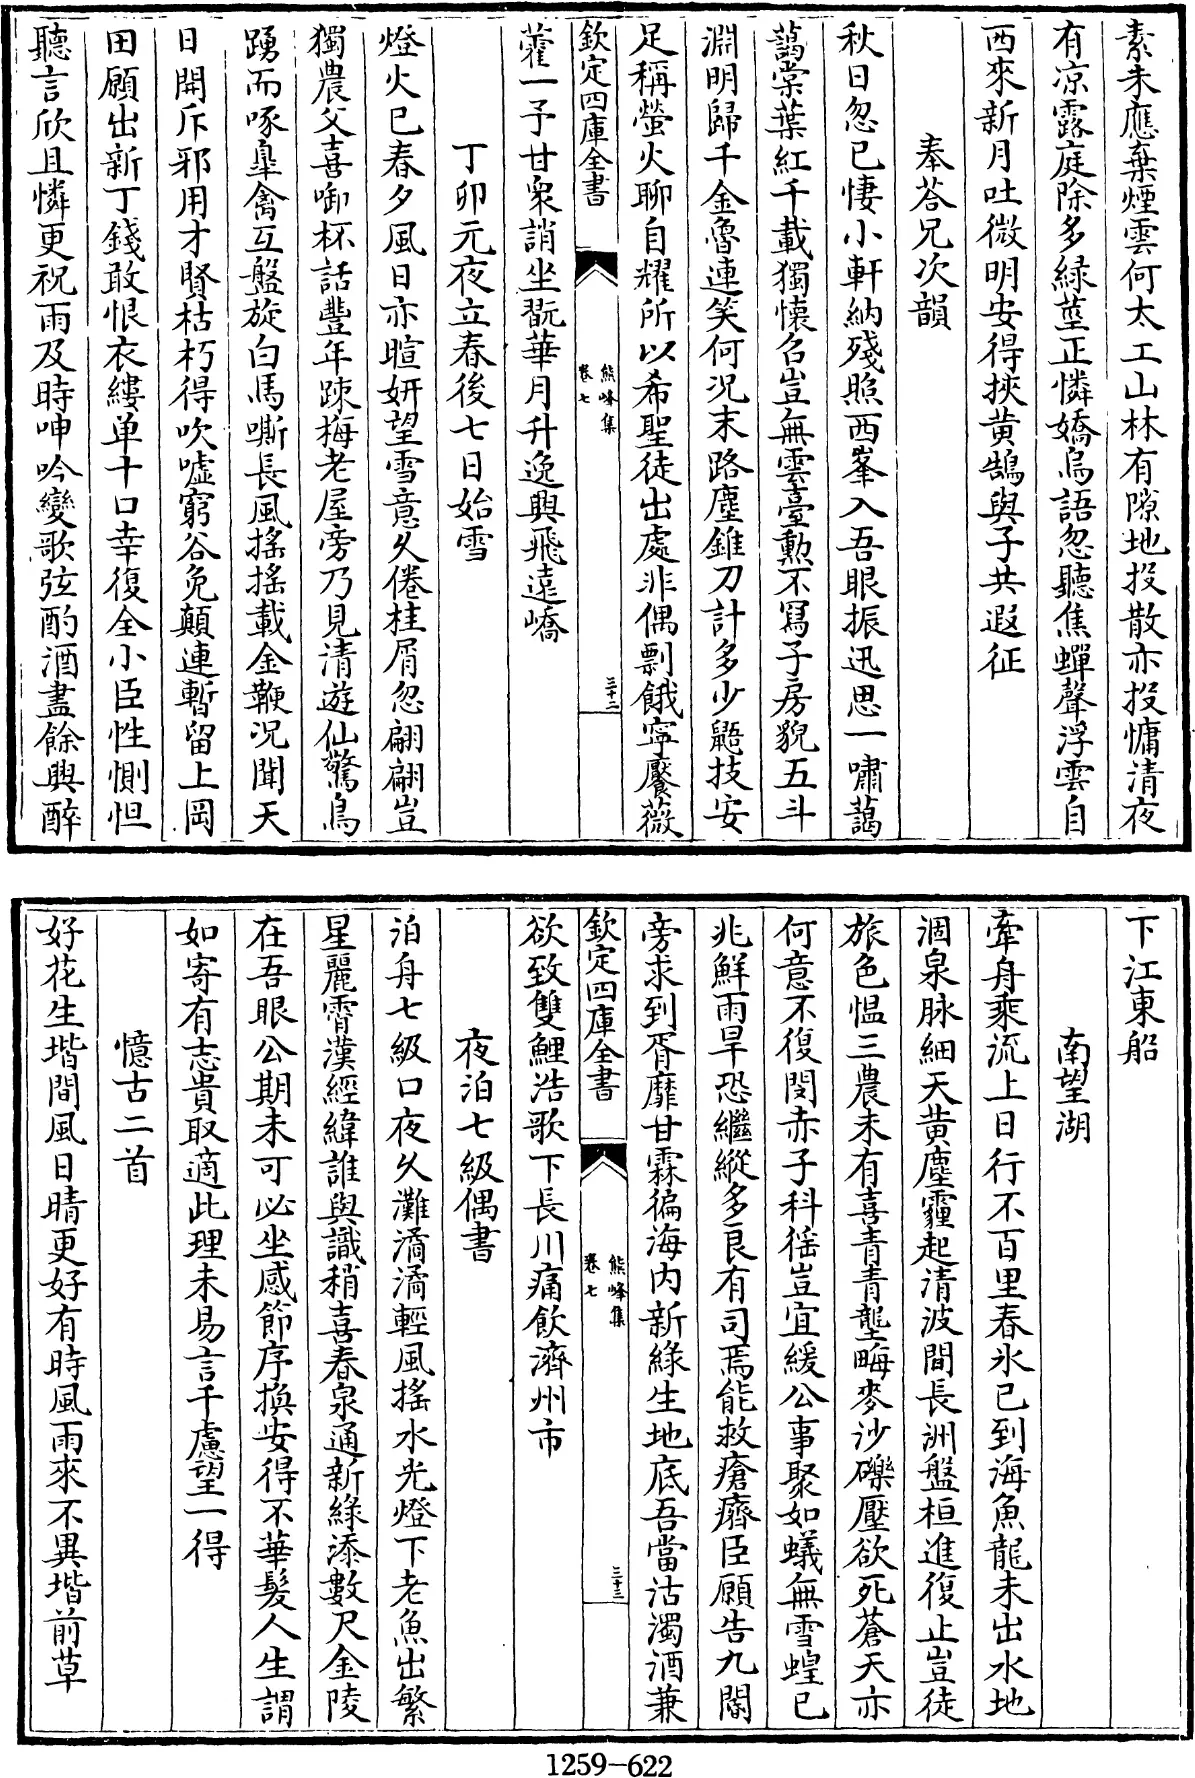 素未應棄煙雲何太工山林有隙地投散亦投慵清夜
有凉露庭除多緑莖正憐嬌鳥語忽聽焦蟬聲浮雲自
西來新月吐微明安得挾黄鵠與子共遐征
奉荅兄次韻
秋日忽已悽小軒納殘照西峯入吾眼振迅思一嘯藹
藹棠葉紅千載獨懷召豈無雲臺勲不冩子房貌五斗
淵明歸千金魯連笑何况末路塵錐刀計多少鼯技安
足稱螢火聊自耀所以希聖徒出處非偶剽餓寜饜薇
欽定四庫全書
熊峰集
卷七
三十二
藿一予甘衆誚坐翫華月升逸興飛遠嶠
丁卯元夜立春後七日始雪
燈火已春夕風日亦暄妍望雪意久倦桂屑忽翩翩豈
獨農父喜啣杯話豐年踈梅老屋旁乃見清遊仙驚鳥
踴而啄臯禽互盤旋白馬嘶長風摇摇載金鞭况聞天
日開斥邪用才賢枯朽得吹嘘窮谷免顛連暫留上岡
田願出新丁錢敢恨衣縷单十口幸復全小臣性惻怛
聽言欣且憐更祝雨及時呻吟變歌弦酌酒盡餘興醉
下江東船
南望湖
牽舟乘流上日行不百里春氷已到海魚龍未出水地
涸泉脉細天黄塵霾起清波間長洲盤桓進復止豈徒
旅色愠三農未有喜青青壟畮麥沙礫壓欲死蒼天亦
何意不復閔赤子科徭豈宜緩公事聚如蟻無雪蝗已
兆鮮雨旱恐繼縱多良有司焉能救瘡癠臣願告九閽
旁求到胥靡甘霖徧海内新緑生地底吾當沽濁酒兼
欽定四庫全書
熊峰集
卷七
三十三
欲致雙鯉浩歌下長川痛飲濟州市
夜泊七級偶書
泊舟七級口夜久灘潏潏輕風摇水光燈下老魚出繁
星麗霄漢經緯誰與識稍喜春泉通新緑添數尺金陵
在吾眼公期未可必坐感節序換安得不華髮人生謂
如寄有志貴取適此理未易言千慮望一得
憶古二首
好花生堦間風日晴更好有時風雨來不異堦前草
1259-622